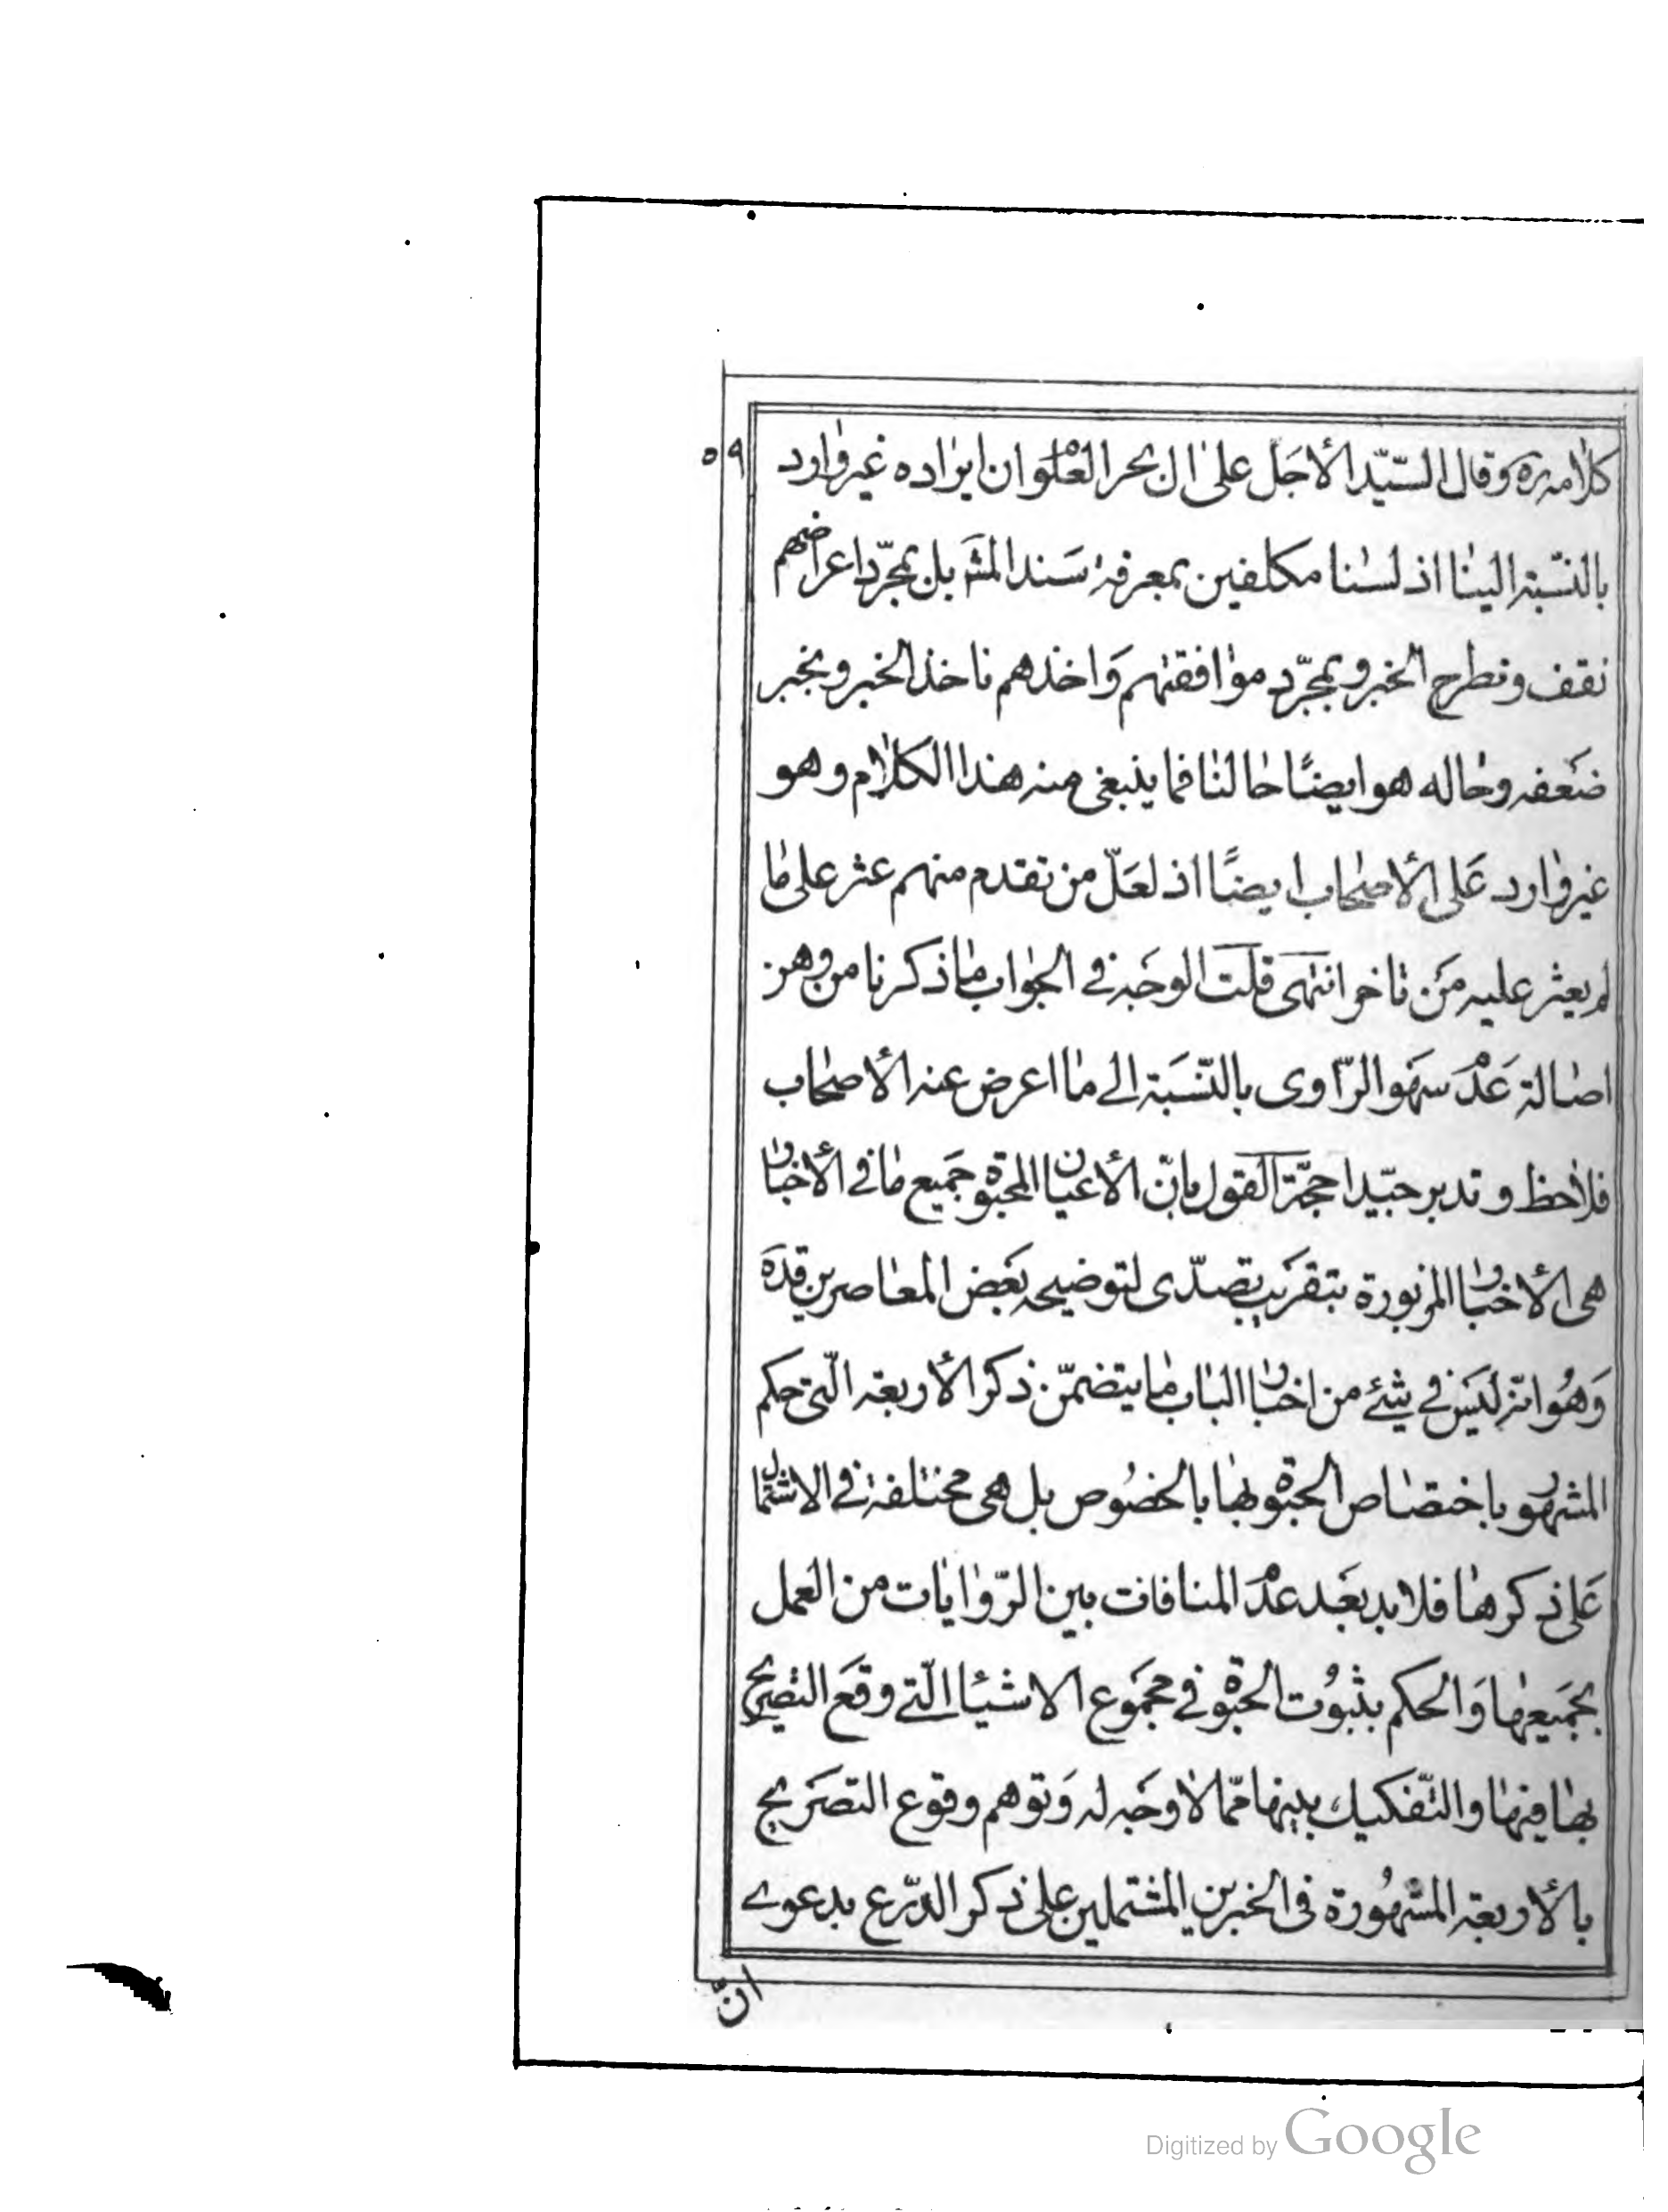 ٥٩
كلامه ره وقال السّيّد الأجَلّ على ال بحر العلوم ان ايراده غير وارد
بالنّسبة الينا اذ لسنا مكلفين بمعرفة سَند المشه بل بمجرّد اعراضهم
نقف ونطرح الخبر وبمجرّد موافقتهم وَاخذهم ناخذ الخبر ونجبر
ضَعفه وحاله هو ايضًا حالنا فما ينبغى منه هذا الكلام وهو
غير وارد عَلى الأصحاب ايضًا اذ لعَلّ من تقدم منهم عثر على ما
لم يعثر عليه مَن تاخر انتهى قلت الوجَه فى الجواب ما ذكرنا من وهن
اصالة عَدم سهَو الرّاوى بالنّسَبة الى ما اعرض عنه الأصحاب
فلاحظ وتدبر جيّدا حجّة القول بانّ الأعيان المحبوة جَميع ما فى الأخبار
هى الأخبار المزبورة بتقريب تصدّى لتوضيحه بَعَض المعاصرين قدّه
وَهُو انّه ليَس فى شئ من اخبار الباب ما يتضمّن ذكر الأربعة الّتى حكم
المشهور باختصاص الحبوة بها بالخصُوص بل هى مختلفة فى الاشتمال
عَلى ذكرها فلا بد بعَد عدم المنافات بين الرّوايات من العَمل
بجَميعها وَالحكم بثبُوت الحبوة فى مجمَوع الاشيا الّتى وقعَ التصريح
بها فيها والتّفكيك بينها ممّا لا وجَه له وَتوهم وقوع التصَريح
بالأربعة المشهُورة فى الخبرين المشتملين على ذكر الدّرع بدعوى
انّ
Digitized by Google